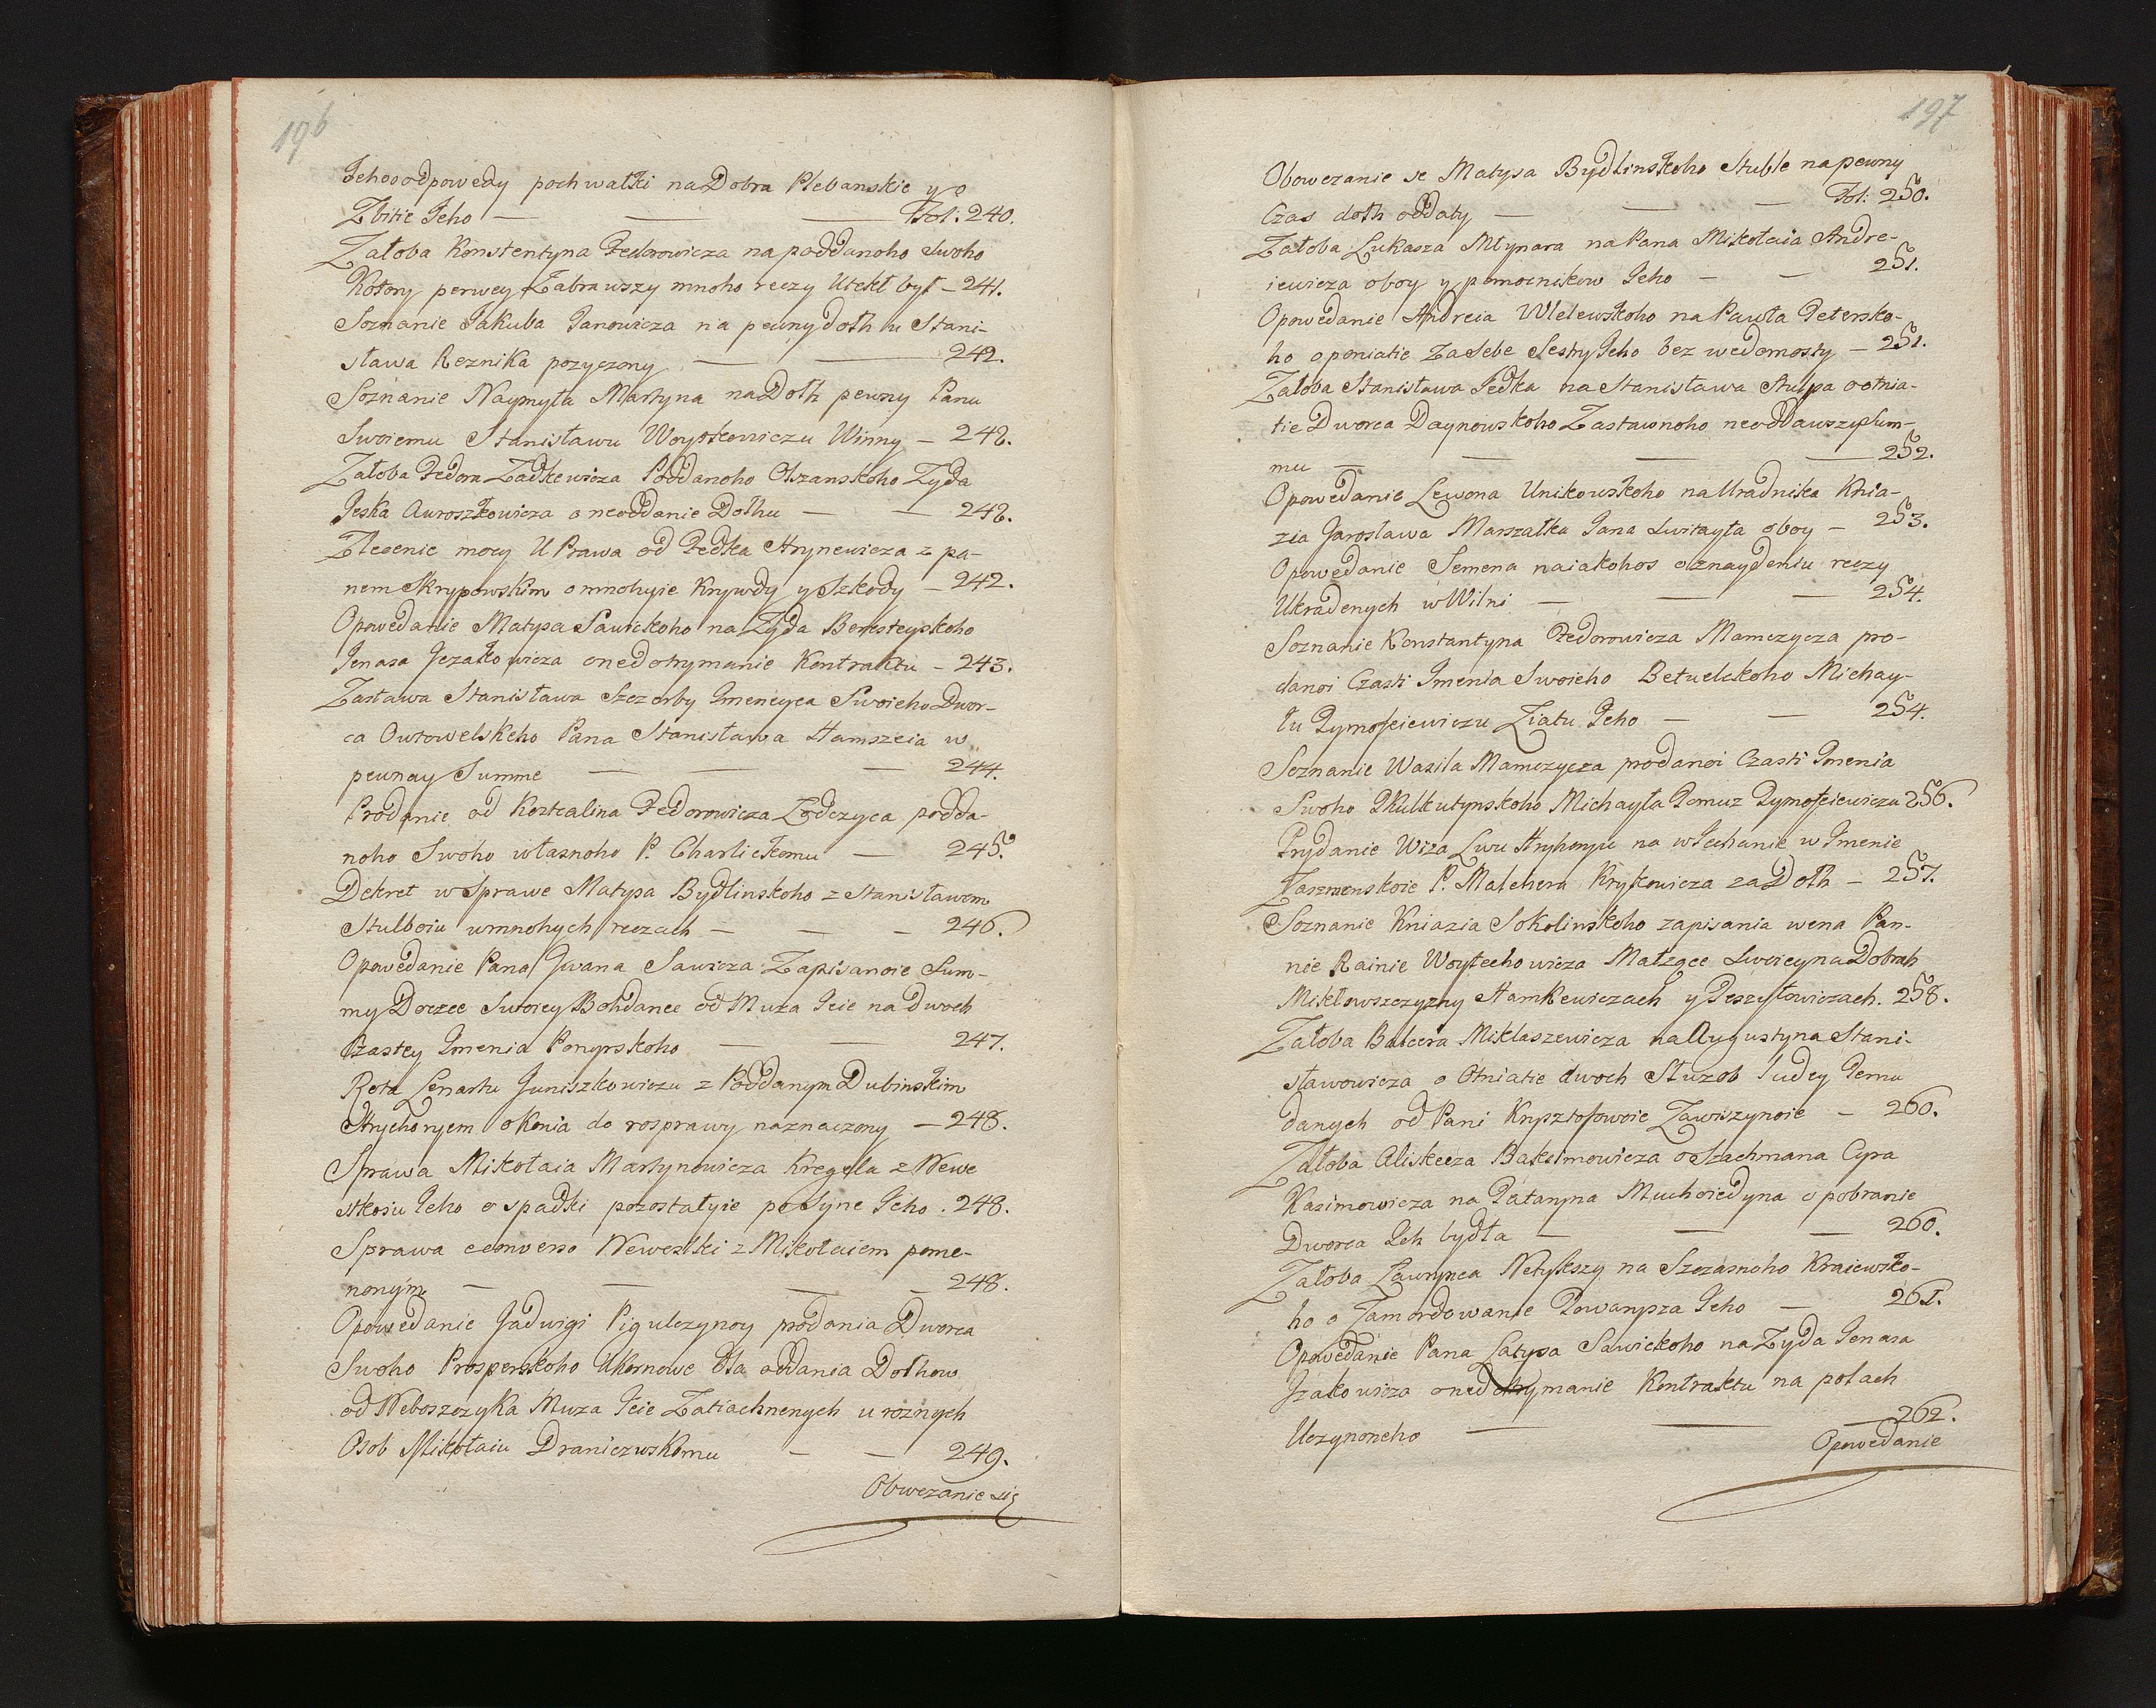 196
Jeho o odpowedy pochwałki na Dobra Plebanskie y o
Zbitie Jeho — — — Fol: 240.
Załoba Konstentyna Fedorowicza na poddanoho Swoho
Kotory perwey Zabrawszy mnoho reczy Utekł był — 241.
Soznanie Jakuba Janowicza na pewny dołh u Stani-
sława Reznika pozyczony — — 242.
Soznanie Naymyta Martyna na Dołh pewny Panu
Swoiemu Stanisławu Woytkowiczu Winny — 242.
Załoba Fedora Zadkewicza Poddanoho Olszanskoho Zyda
Jeska Awroszkowicza o neoddanie Dołhu — — 242.
Zlecenie mocy U Prawa od Fedka Hrynewicza z pa-
nem Skrypowskim o mnohyie Krywdy y Szkody — 242.
Opowedanie Matysa Sawickoho na Zyda Beresteyskoho
Jenasa Jezakowicza o nedotrymanie Kontraktu — 243.
Zastawa Stanisława Szczerby Jmeneyca Swoieho Dwor-
ca Owtowelskoho Pana Stanisława Hamszeia w
pewnay Summe — — — 244.
Prodanie od Kostcalina Fedorowicza Zodczyca podda-
noho Swoho własnoho P. Charlickomu — 245.
Dekret w Sprawe Matysa Bydlinskoho z Stanisławom
Stulboiu w mnohych reczach — — — 246.
Opowedanie Pana Jwana Sawicza Zapisanoie Sum-
my Doczce Swoiey Bohdance od Muza Jeie na Dwoch
Czastey Jmenia Ponyrskoho — — 247.
Rota Lenartu Juniszkowiczu z Poddanym Dubinskim
Hryhoryem o Konia do rosprawy naznaczony — 248.
Sprawa Mikołaia Martynowicza Kregela z Newe
stkoiu Jeho o spadki pozostałyie po Syne Jeho . 248.
Sprawa converso Newestki z Mikołaiem pome-
nonym — — — — 248.
Opowedanie Jadwigi Pigulczynoy prodania Dworca
Swoho Prosperskoho Ukornowe dla oddania Dołhow
od Neboszczyka Muza Jeie Zatiachnenych u roznych
Osob Mikołaiu Draniczwskomu — — 249.
Obwezanie się
197
Obowezanie se Matysa Bydlinskoho Stuble na pewny
Czas dołh oddaty — — — Fol: 250.
Załoba Łukasza Młynara na Pana Mikołaia Andre-
iewicza o boy y pomocnikow Jeho — — 251.
Opowedanie Andreia Wlelewskoho na Pawła Petersko-
ho o poniatie Za Sebe Sestry Jeho bez wedomosty — 251.
Załoba Stanisława Fedka na Stanisława Stulpa o otnia-
tie Dworca Daynowskoho Zastawnoho neoddawszy Sum-
mu — — — — 252.
Opowedanie Lewona Unikowskoho na Uradnika Knia-
zia Jarosława Marszałka Jana Switayła o boy — 253.
Opowedanie Semena na iakohos o znaydeniu reczy
Ukradenych w Wilni — — — 254.
Soznanie Konstantyna Fedorowicza Mamczycza pro-
danoi Czasti Jmenia Swoieho Betuelckoho Michay-
łu Tymofeiewiczu Ziatu Jeho — — 254.
Soznanie Wasila Mamczycza prodanoi Czasti Jmenia
Swoho Kulkutynskoho Michayła Tomuz Tymofeiewiczu 256.
Prydanie Wiza Lwu Hryhoryu na wiechanie w Jmenie
Zaszwenskoie P. Malchera Krysztowicza za Dołh — 257.
Soznanie Kniazia Sokolinskoho zapisania wena Pan-
nie Rainie Woytechowicza Małzące Swoiey na Dobrah
Miktowszczyzny Hamkewiczach y Peszytowiczach. 258.
Załoba Balcera Miklaszewicza na Augustyna Stani-
sławowicza o Otniatie dwoch Słuzob Ludey Jemu
danych od Pani Krysztofowoie Zawiszynoie — 260.
Załoba Aliskecza Baksimowicza o Szachmana Cyra
Kasimowicza na Tataryna Muchoiedyna o pobranie
Dworca Jeh bydła — — — 260.
Załoba Ławrynca Netykszy na Szczasnoho Kraiewsko-
ho o Zamordowanie Towarysza Jeho — 261.
Opowedanie Pana Latysa Sawickoho na Zyda Jenasa
Jzakowicza o nedotrymanie Kontraktu na połach
Uczynonoho — — — 262.
Opowedanie